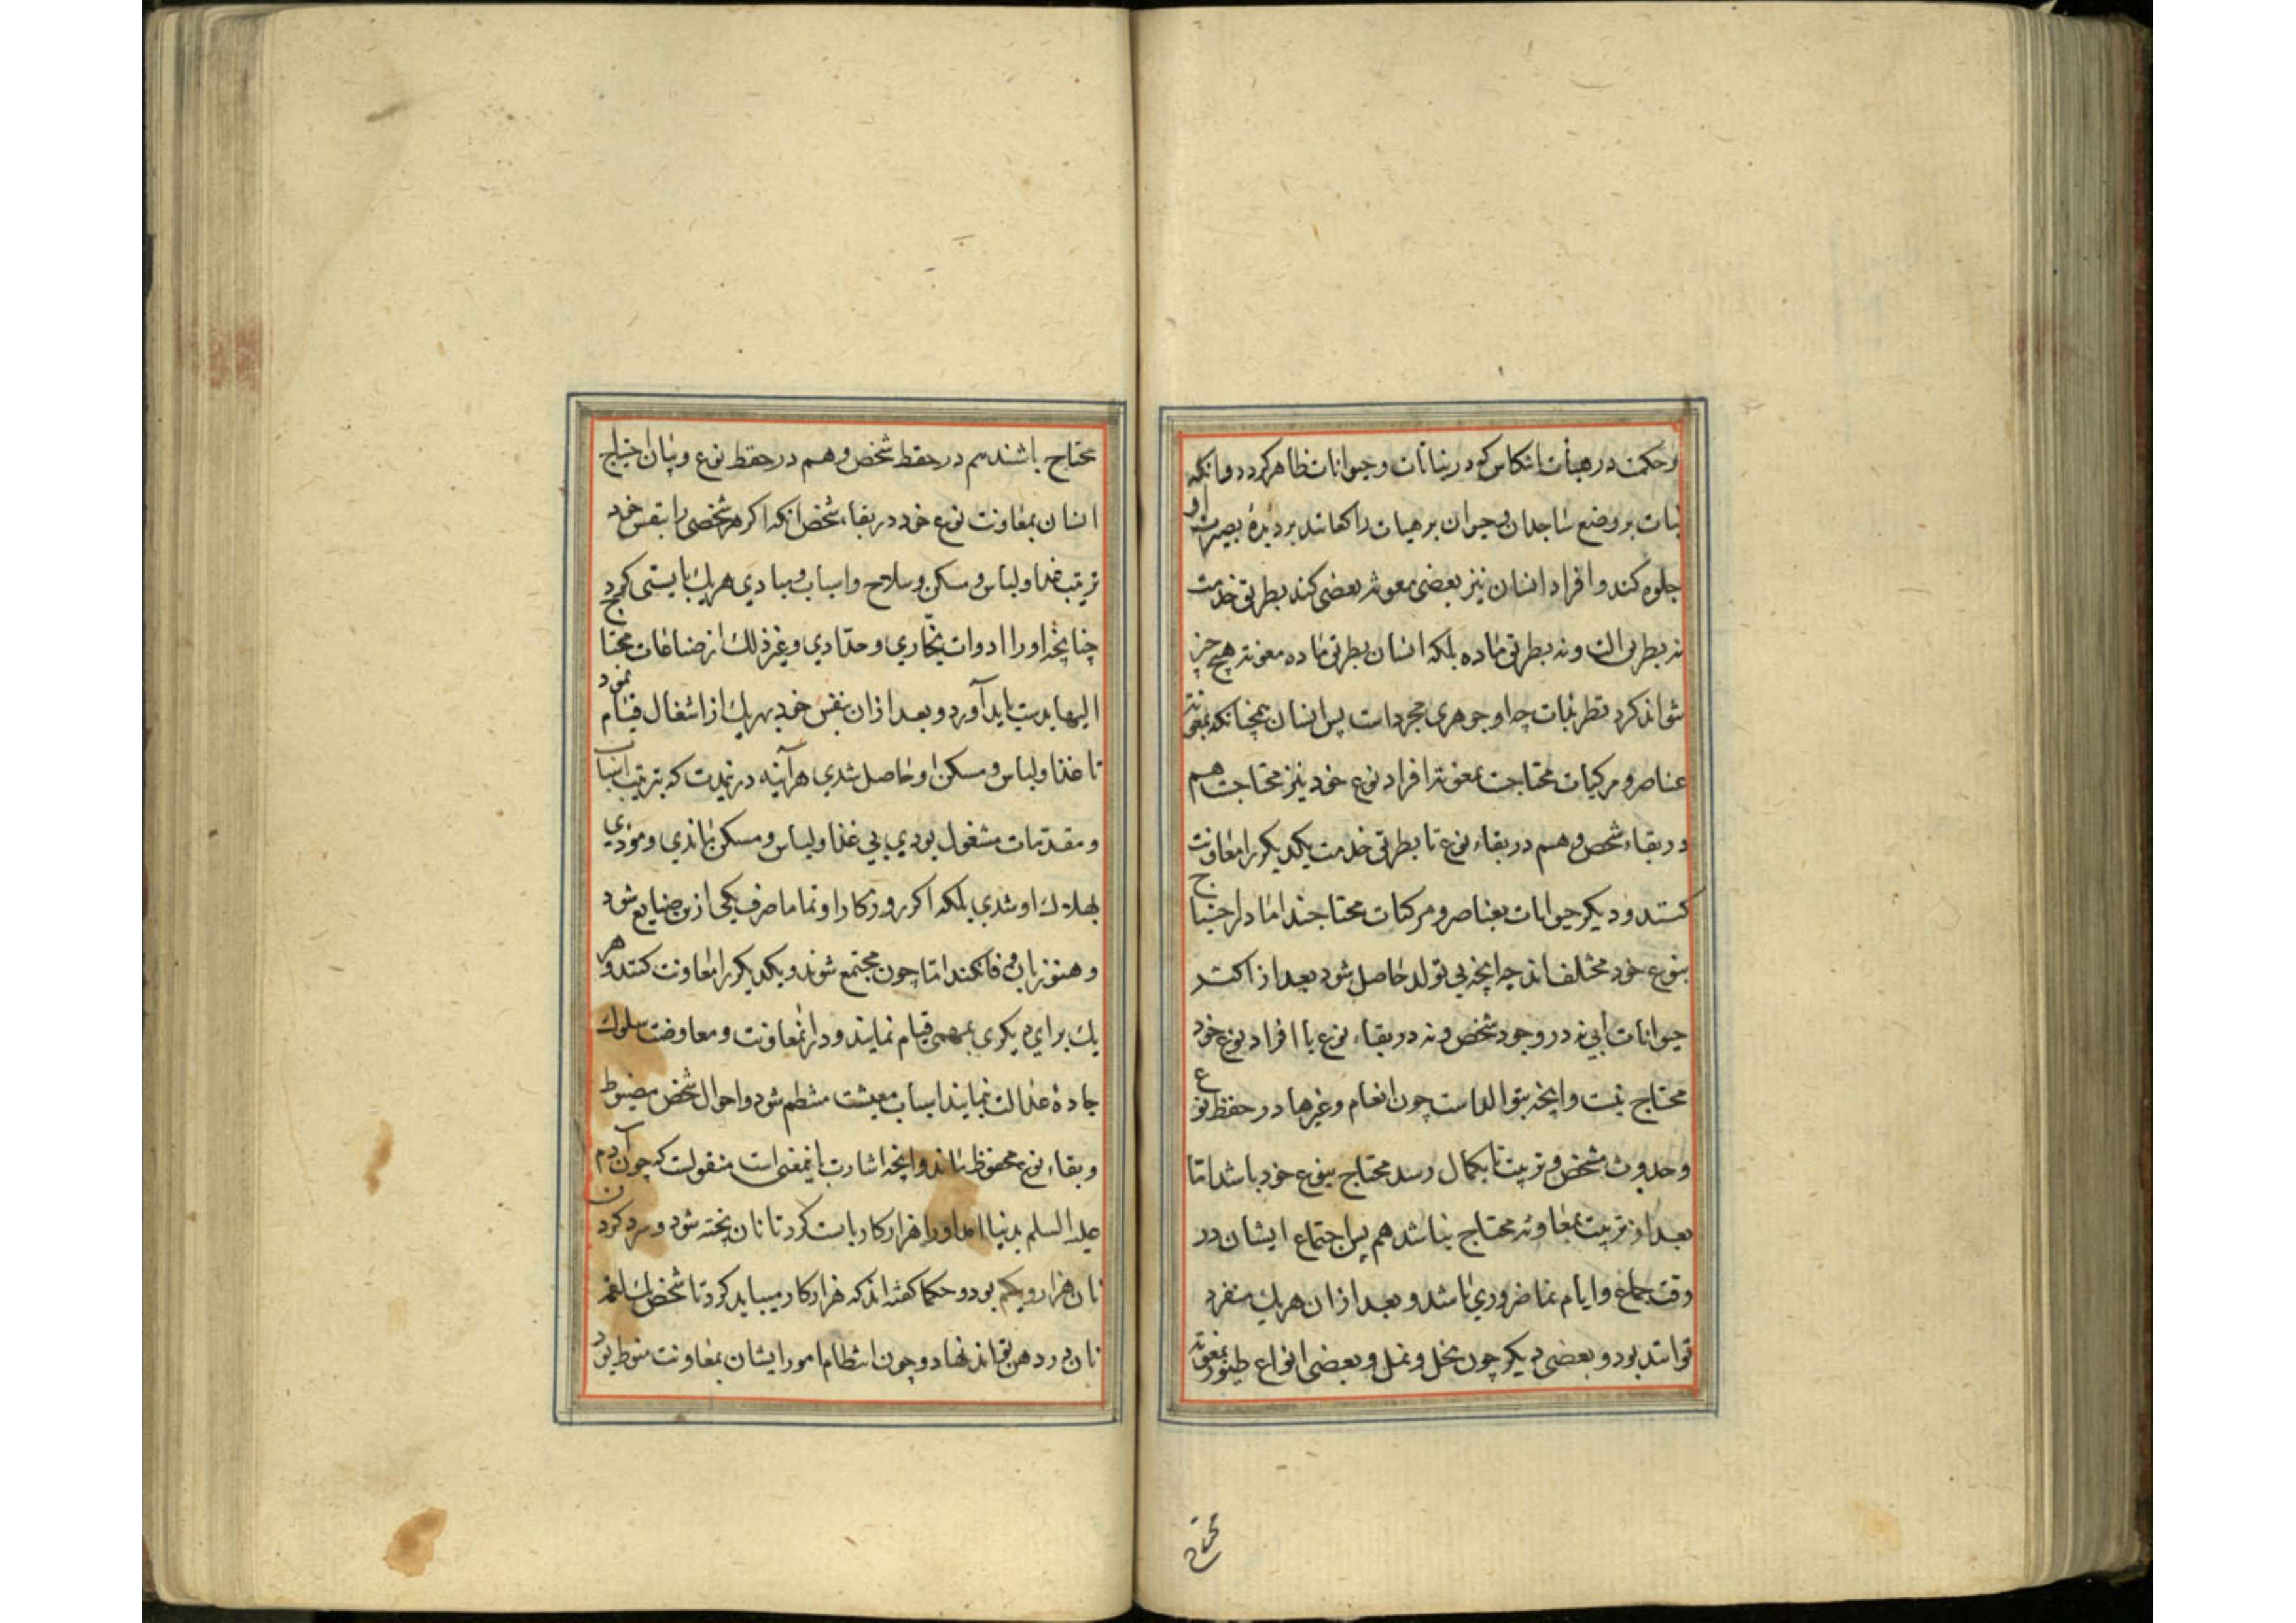 و حکمت در هیأت انتکاس که در نباتات و حیوانات ظاهر کردد و انکه
نبات بر وضع ساجدان و حیوان بر هیات راکعانند بر دیدهٔ بصیرت او
جلوه کند و افراد انسان نیز بعضی معونه بعضی کند بطریق خدمت
نه بطریق الت و نه بطریق ماده بلکه انسان بطریق ماده معونه هیچ چیز
نتواند کرد نظر بذات چه او جوهری مجرد است پس انسان همچنانکه بمعونه
عناصر و مرکبات محتاجست بمعونه افراد نوع خود نیز محتاجست هم
در بقاء شخص و هم در بقاء نوع تا بطریق خدمت یکدیکر را معاونت
کنند و دیکر حیوانات بعناصر و مرکبات محتاجند اما در احتیاج
بنوع خود مختلف‌اند چه انچه بی تولد حاصل شود بعد از اکثر
حیوانات آبی نه در وجود شخص و نه در بقاء نوع با افراد نوع خود
محتاج نیست و انچه بتوالد است چون انعام و غیرها در حفظ نوع
و حدوث شخص و تربیت تا بکمال رسد محتاج بنوع خود باشد اما
بعد از تربیت بمعاونه محتاج نباشد هم پس اجتماع ایشان در
وقت جماع و ایام نما ضروری باشد و بعد از ان هر یك منفرد
توانند بود و بعضی دیکر چون نحل و نمل و بعضی انواع طیور بمعونه
محتاج
محتاج باشند هم در حفظ شخص و هم در حفظ نوع و بیان احتیاج
انسان بمعاونت نوع خود در بقاء شخص انکه اکر هر شخصی را بنفس خود
ترتیب غذا و لباس و مسکن و سلاح و اسباب و مبادی هر یك بایستی کرد
چنانچه او را ادوات نجّاری و حدّادی و غیر ذلك از صناعات محتاج
الیها بدست باید آورد و بعد از ان بنفس خود بهر یك از اشغال قیام نمود
تا غذا و لباس و مسکن او حاصل شدی هرآینه در نمدت که بترتیب اسباب
و مقدمات مشغول بودی بی غذا و لباس و مسکن بماندی و مؤدی
بهلاك او شدی بلکه اکر روزکار او تماما صرف یکی ازین صنایع شود
و هنوز بان وفا نکند اما چون مجتمع شوند و یکدیکر را معاونت کنند و هر
یك برای دیکری بمهمی قیام نمایند و در انمعاونت و معاوضت سلوك
جادهٔ عدالت نمایند اسباب معیشت منتظم شود و احوال شخص مضبوط
و بقاء نوع محفوظ ماند و انچه اشارت بانیمعنی است منقولست که چون آدم
علیه السلم بدنیا امد او را هزار کار بایست کرد تا نان پخته شود و سرد کردن
نان هزار و یکم بود و حکما کفته‌اند که هزار کار میباید کرد تا شخص یك لقمه
نان در دهن تواند نهاد و چون انتظام امور ایشان بمعاونت منوط بود